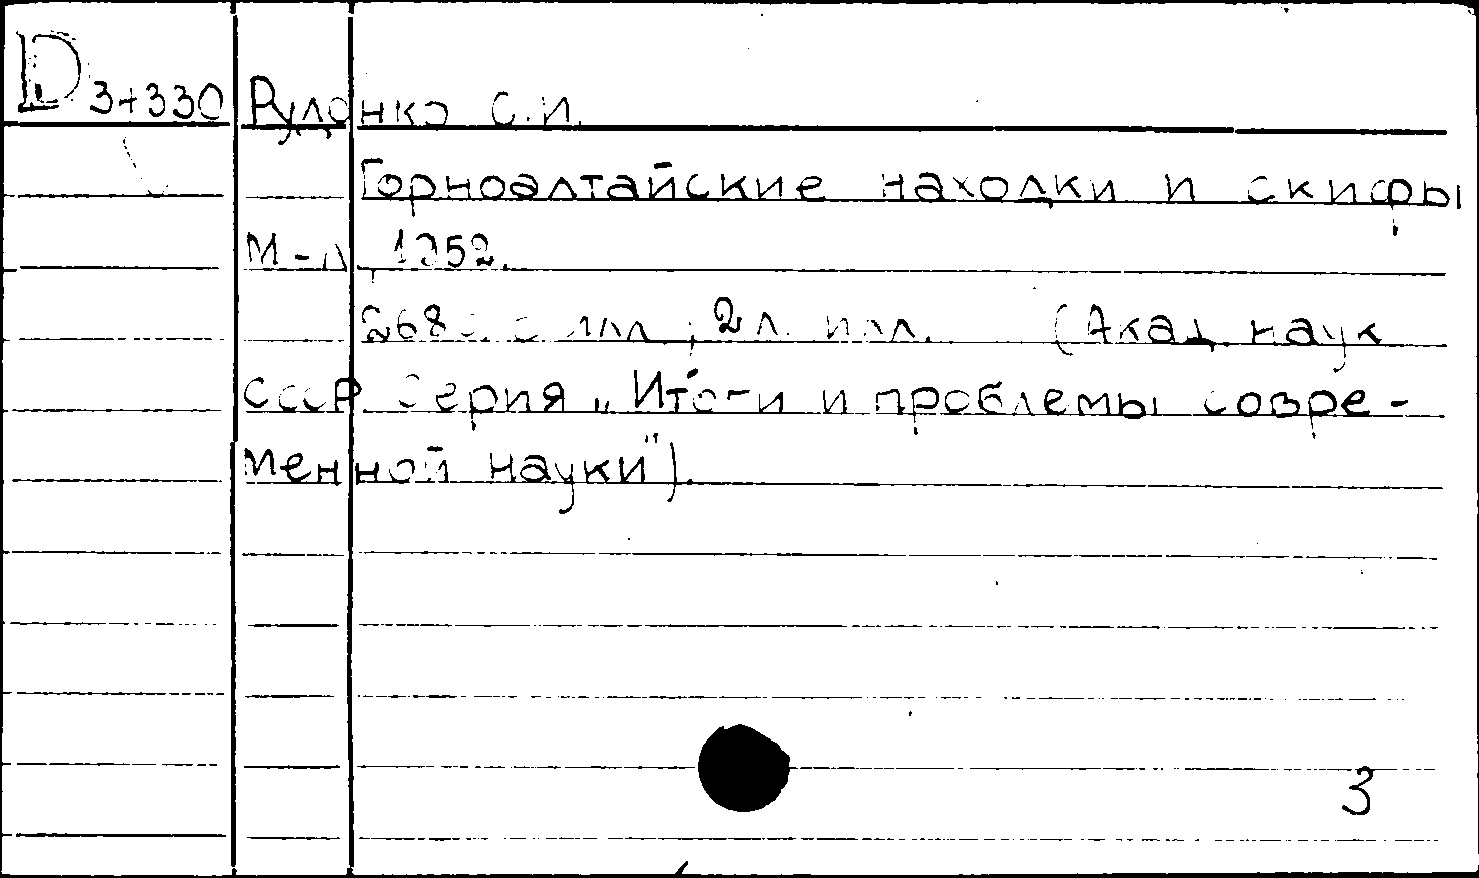 D 3+330 Руденко С.И.
Горноалтайские находки и скифы
М-Л, 1952.
268 с. с илл., 2 л. илл. (Акад. наук
СССР. Серия „Итоги и проблемы совре-
менной науки").
3